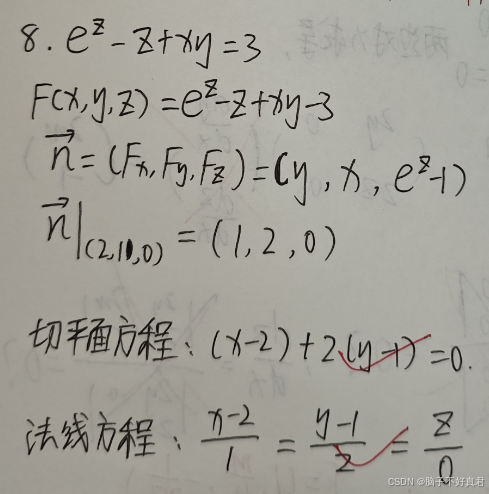 8. e^z - z + xy = 3
F(x,y,z) = e^z - z + xy - 3
n⃗ = (Fx, Fy, Fz) = (y, x, e^z - 1)
n⃗|(2,1,0) = (1, 2, 0)
切平面方程: (x-2) + 2(y-1) = 0.
法线方程: (x-2)/1 = (y-1)/2 = z/0
CSDN @脑子不好真君